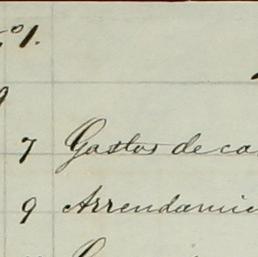 7 Gastos de ca
9 Arrendamie